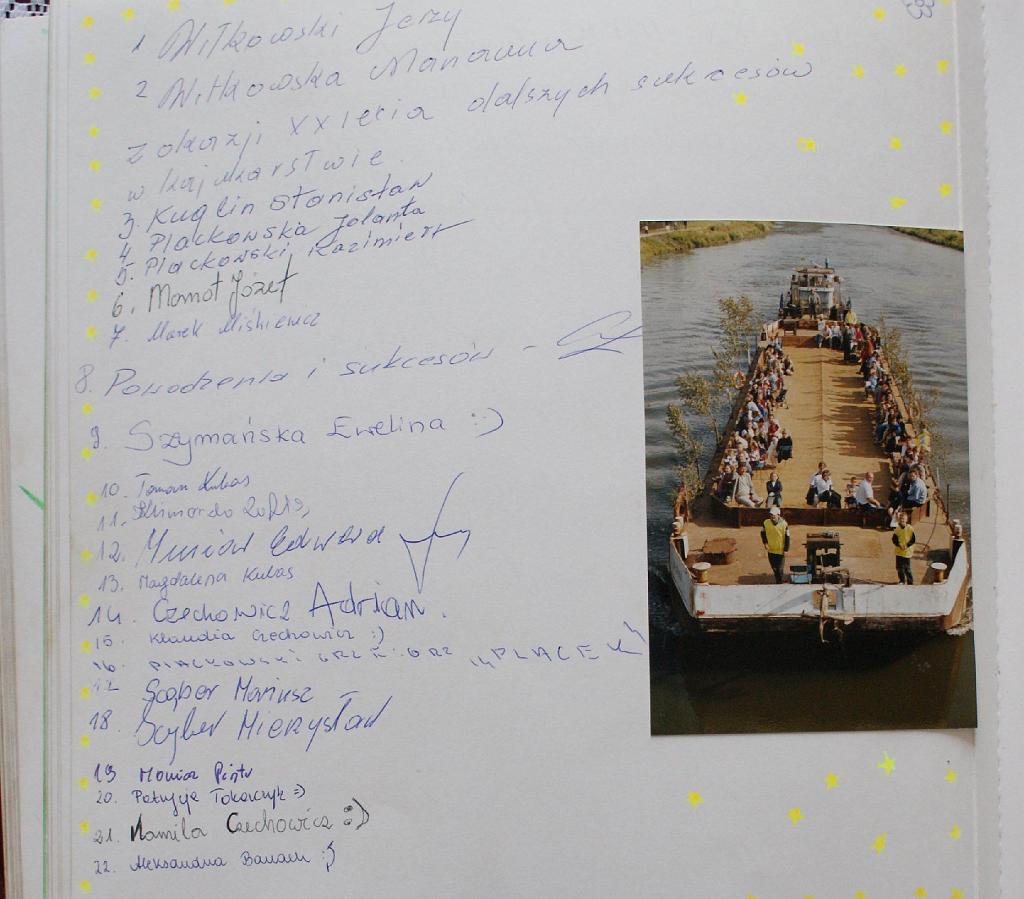 33
1 Witkowski Jerzy
2 Witkowska Marianna
z okazji XX lecia dalszych sukcesów
w kajakarstwie.
3. Kuglin Stanisław
4 Plackowska Jolanta
5. Plackowski Kazimierz
6. Mamot Józef
7. Marek Miśkiewicz
8. Powodzenia i sukcesów -
9. Szymańska Ewelina :)
10. Kubas
11.
12. Edward
13. Magdalena Kubas
14. Czechowicz Adrian.
15. Klaudia Czechowicz :)
16. PLACKOWSKI GRZEGORZ "PLACEK"
17 Mariusz
18. Mieczysław
19 Piotr
20. Patrycja Tokarczyk =)
21. Kamila Czechowicz :D
22. Aleksandra Banach :)